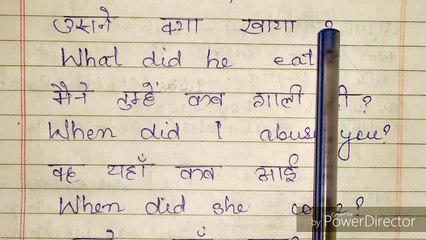 उसने क्या खाया ?
What did he eat
मैंने तुम्हें कब गाली दी?
When did I abuse you?
वह यहाँ कब आई
When did she come?
PowerDirector